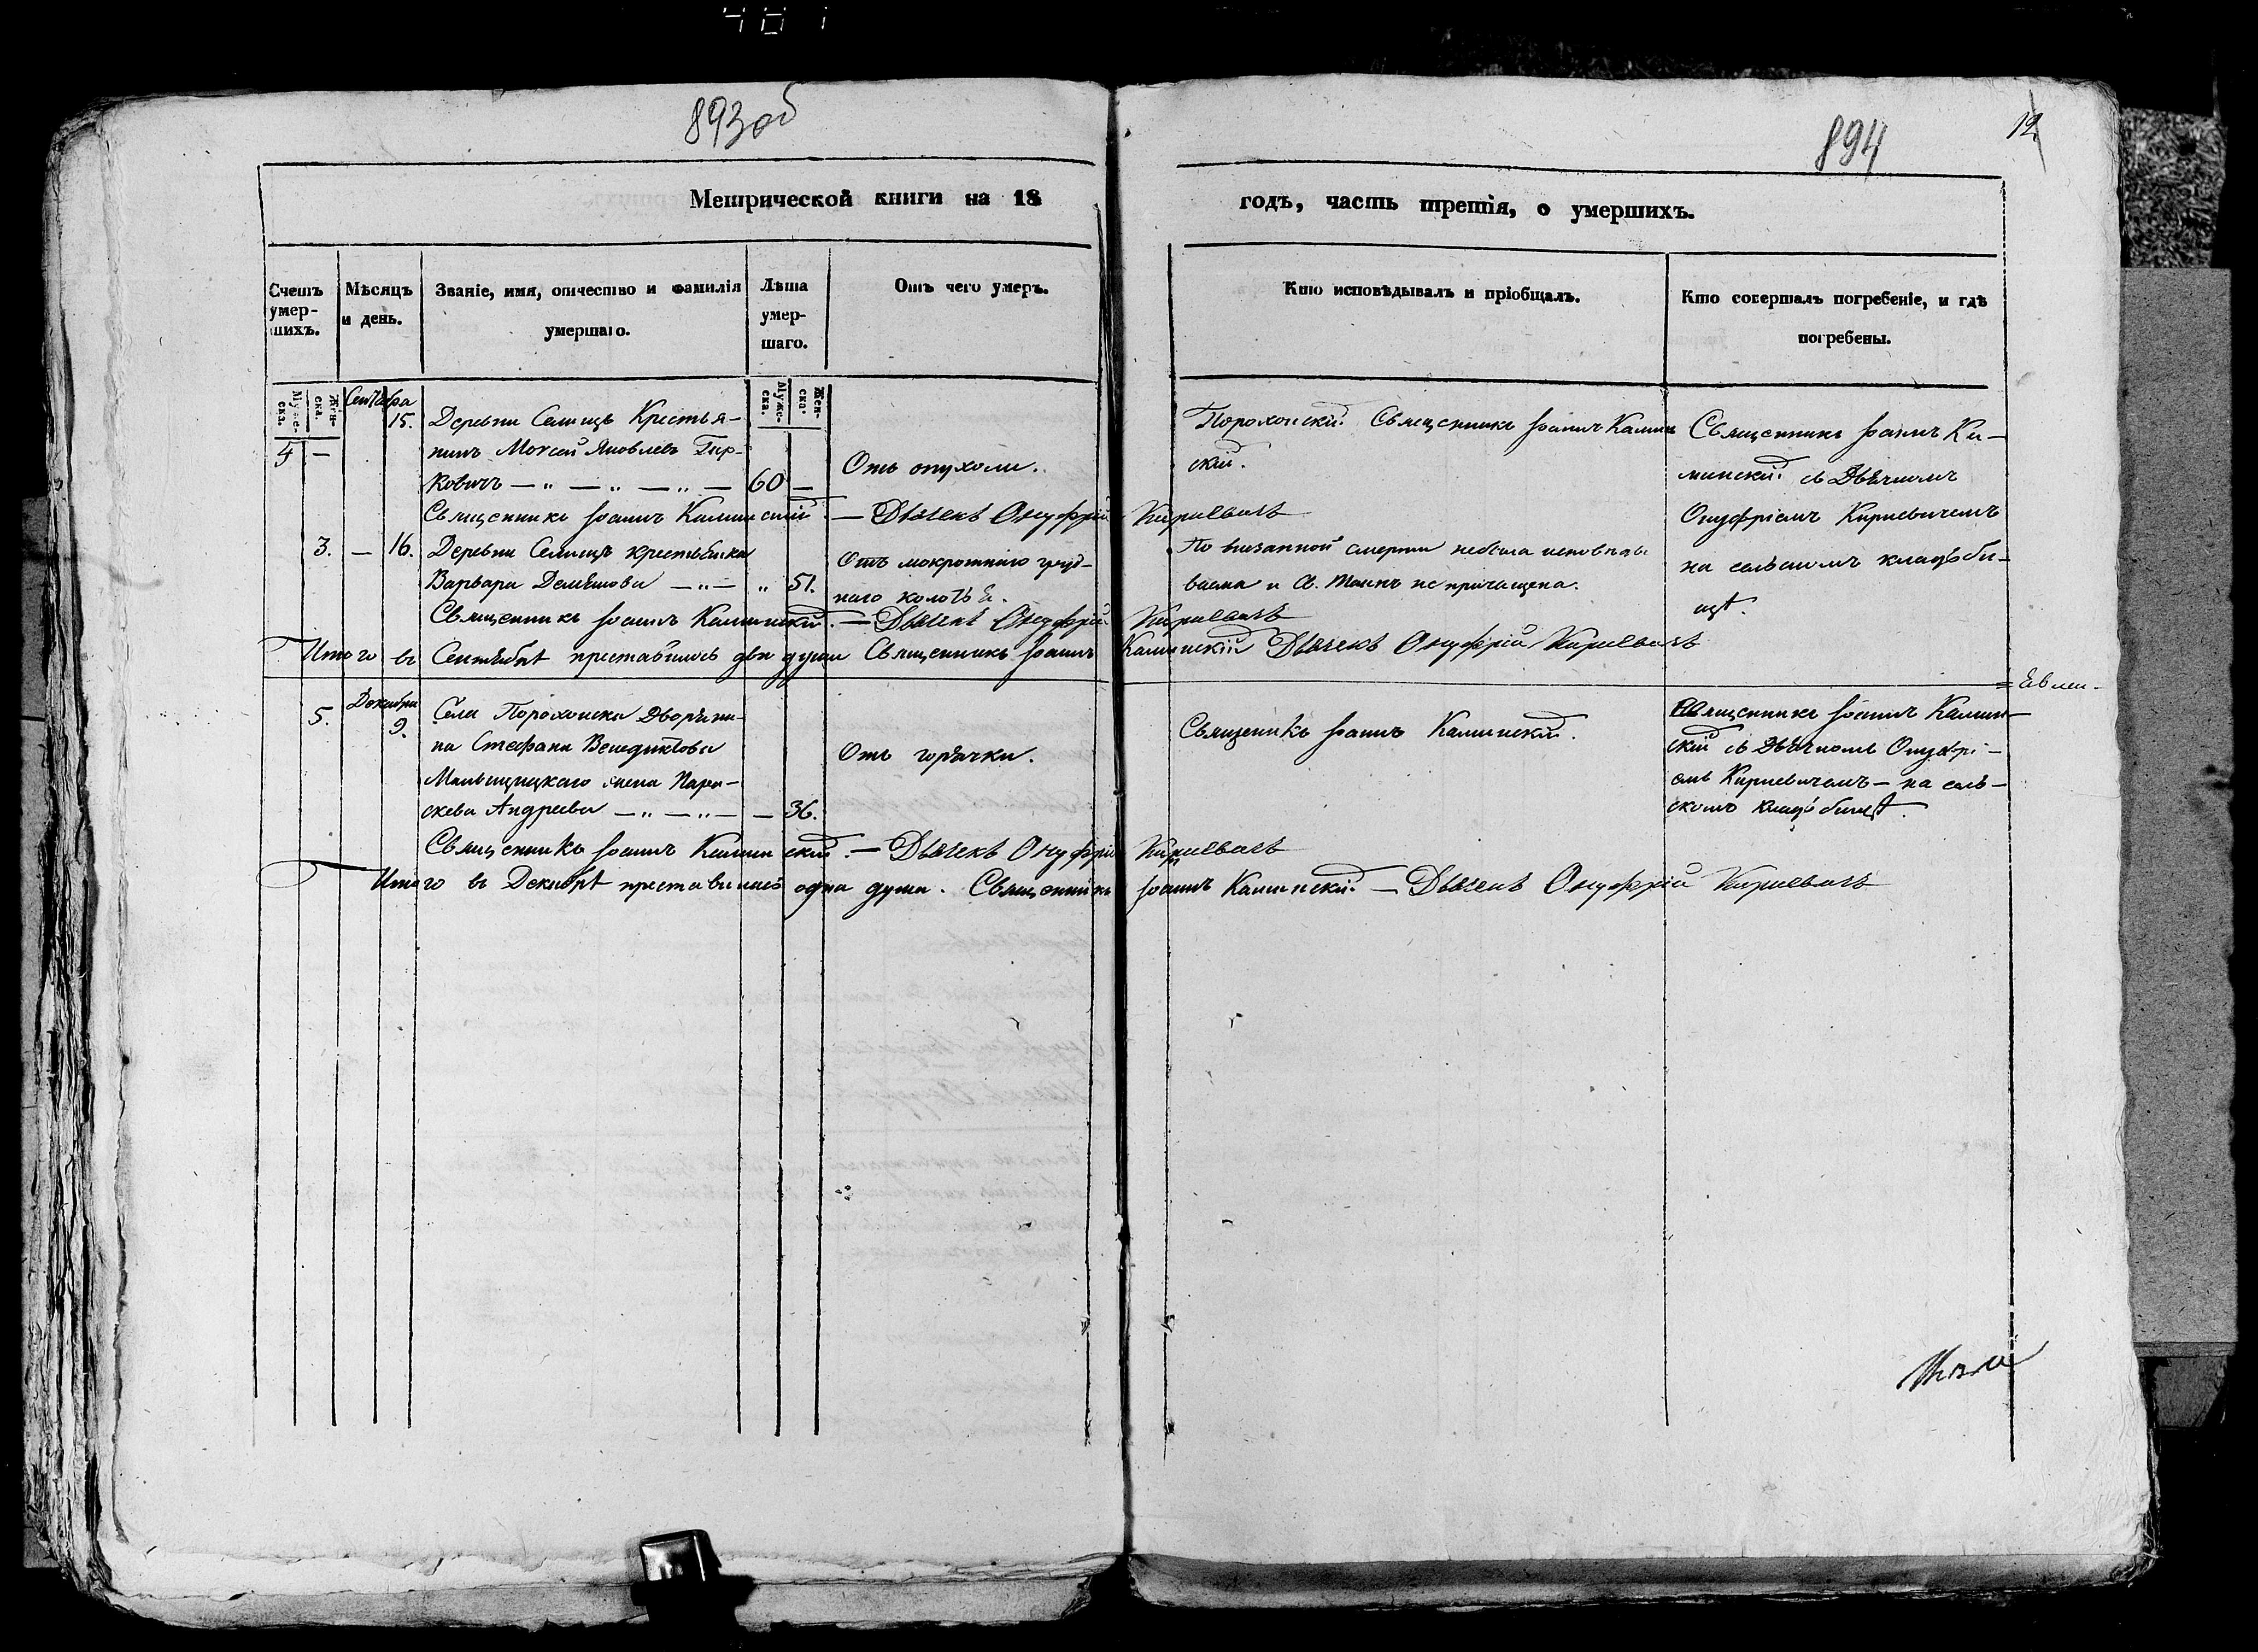 893об
894
12
Метрической книги на 18 годъ, часть третія, о умершихъ.
Счетъ умершихъ.
Мѣсяцъ и день.
Званіе, имя, отчество и фамилія умершаго.
Лѣта умершаго.
Отъ чего умеръ.
Кто исповѣдывалъ и пріобщалъ.
Кто совершалъ погребеніе, и гдѣ погребены.
Муже-ска.
Жен-ска.
Муже-ска.
Жен-ска.
Сентября
15.
Деревни Селищъ Крестья-
4 —
нинъ Моѵсей Яковлевъ
ковичъ — „ — „ — „ — 60 —
Отъ опухоли.
Порохонскій Священникъ Іоаннъ Камин
скій.
Священникъ Іоаннъ Ка-
минскій съ Дьячкомъ
Онуфріемъ Кириевичемъ
на сельскомъ кладьби-
щѣ.
Священникъ Іоаннъ Каминскій. — Дьячекъ Онуфрій Кириевичъ
3. — 16.
Деревни Селищъ крестьянка
Варвара Демьянова — „ — „ 51.
Отъ мокротнаго груд-
наго колотья.
По внезапной смерти небыла исповѣды
ваема и Св. Таинъ не причащена.
Священникъ Іоаннъ Каминскій. — Дьячекъ Онуфрій Кириевичъ
Итого въ Сентябрѣ преставилось двѣ души Священникъ Іоаннъ Каминскій Дьячекъ Онуфрій Кириевичъ
Декабря
5. 9.
Села Порохонска Дворяни-
на Стефана Венедиктова
Мальщицкаго жена Пара-
скева Андреева — „ — „ — — 36.
Отъ горячки.
Священникъ Іоаннъ Каминскій.
Священникъ Іоаннъ Камин-
скій съ Дьячкомъ Онуфрі-
емъ Кириевичемъ — на сель-
скомъ кладьбищѣ.
Священникъ Іоаннъ Каминскій. — Дьячекъ Онуфрій Кириевичъ
Итого въ Декабрѣ преставилась одна душа. Священникъ Іоаннъ Каминскій — Дьячекъ Онуфрій Кириевичъ